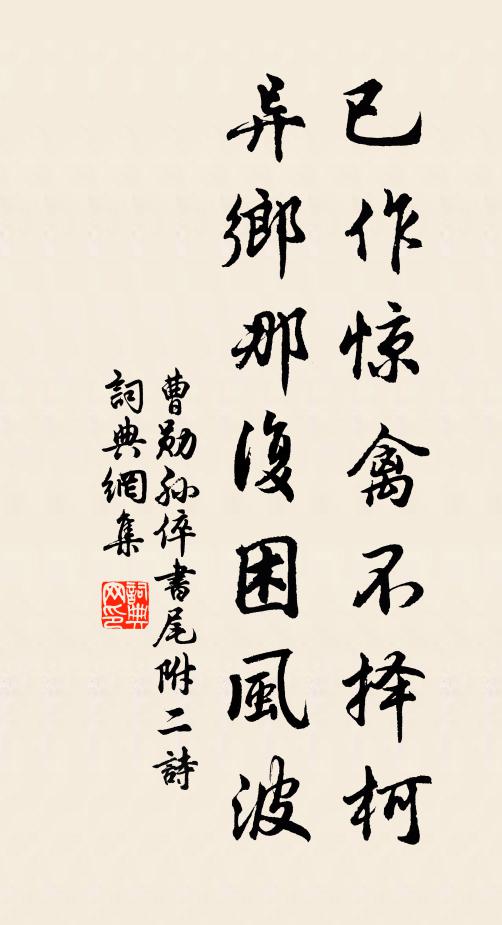 已作惊禽不择柯
异鄉那復困風波
曹勋孙倅書尾附二詩
詞典網集
詞典网印